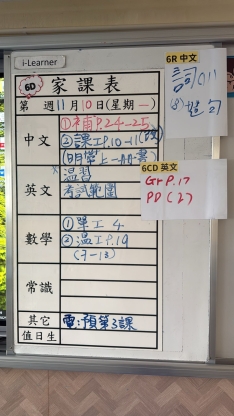 i-Learner
6D 家課表
第 週11月10日(星期一)
中文
①補P.24-25
②課工P.10-11(改)
(明帶上一冊書
英文
溫習
考試範圍
數學
①單工4
②溫工P.19
(7-13)
常識
其它
電:預第3課
值日生
6R 中文
詞(11)
(8)造句
6CD 英文
Gr P.17
PD (27)